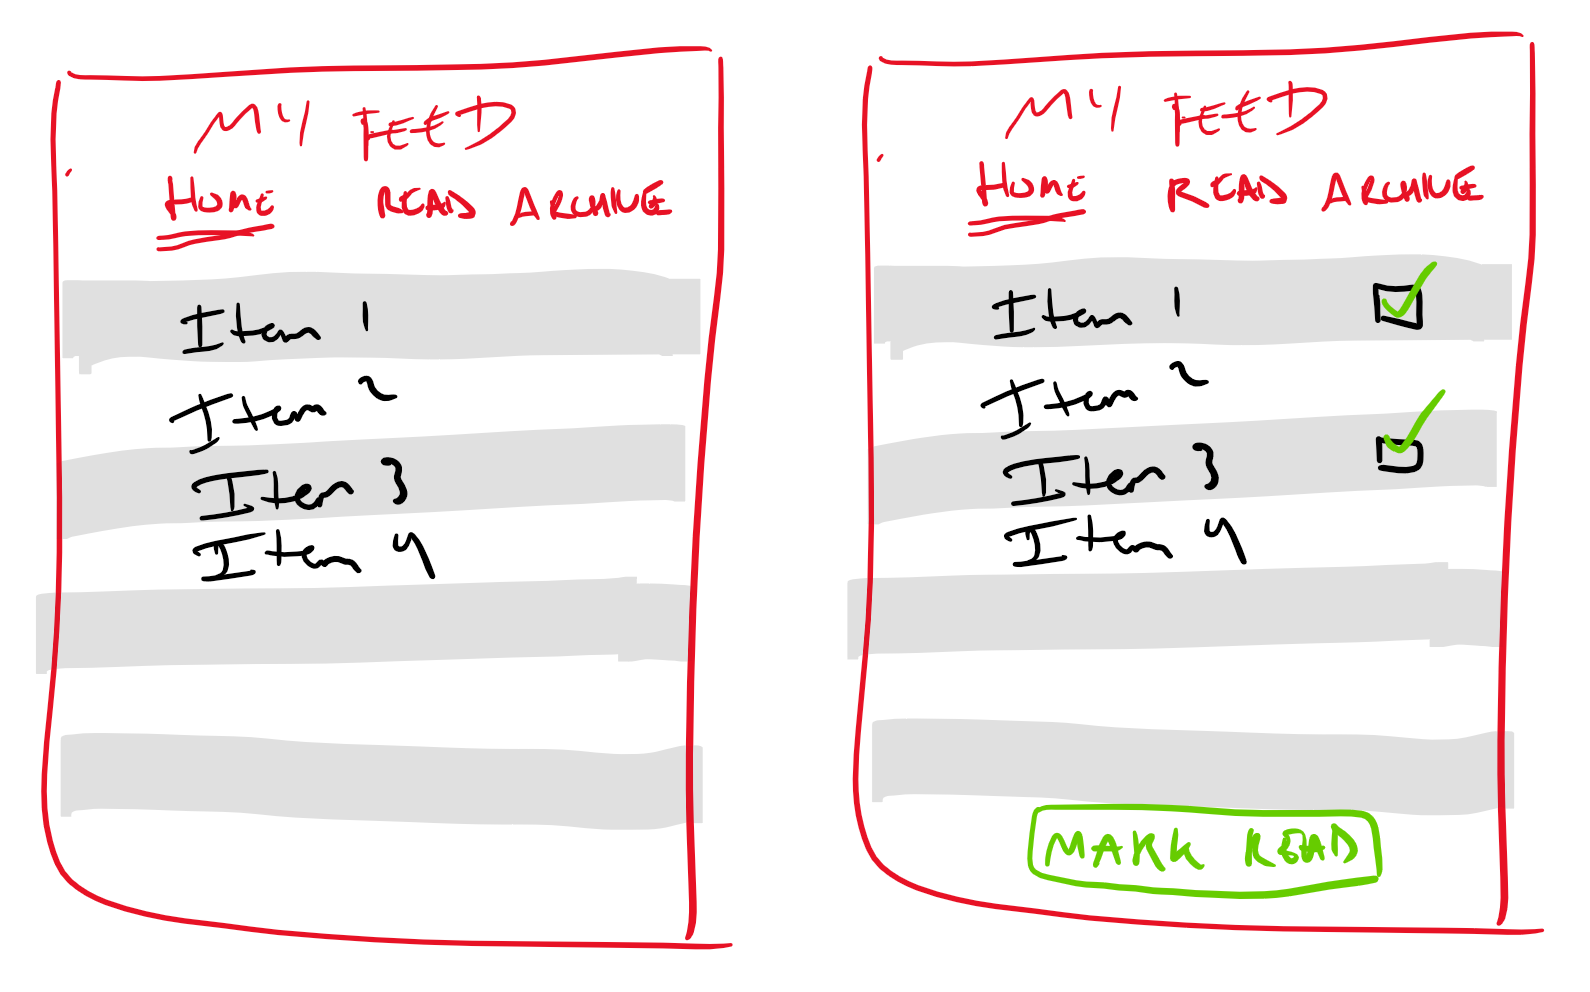 MY FEED
HOME READ ARCHIVE
Item 1
Item 2
Item 3
Item 4
MY FEED
HOME READ ARCHIVE
Item 1
Item 2
Item 3
Item 4
MARK READ